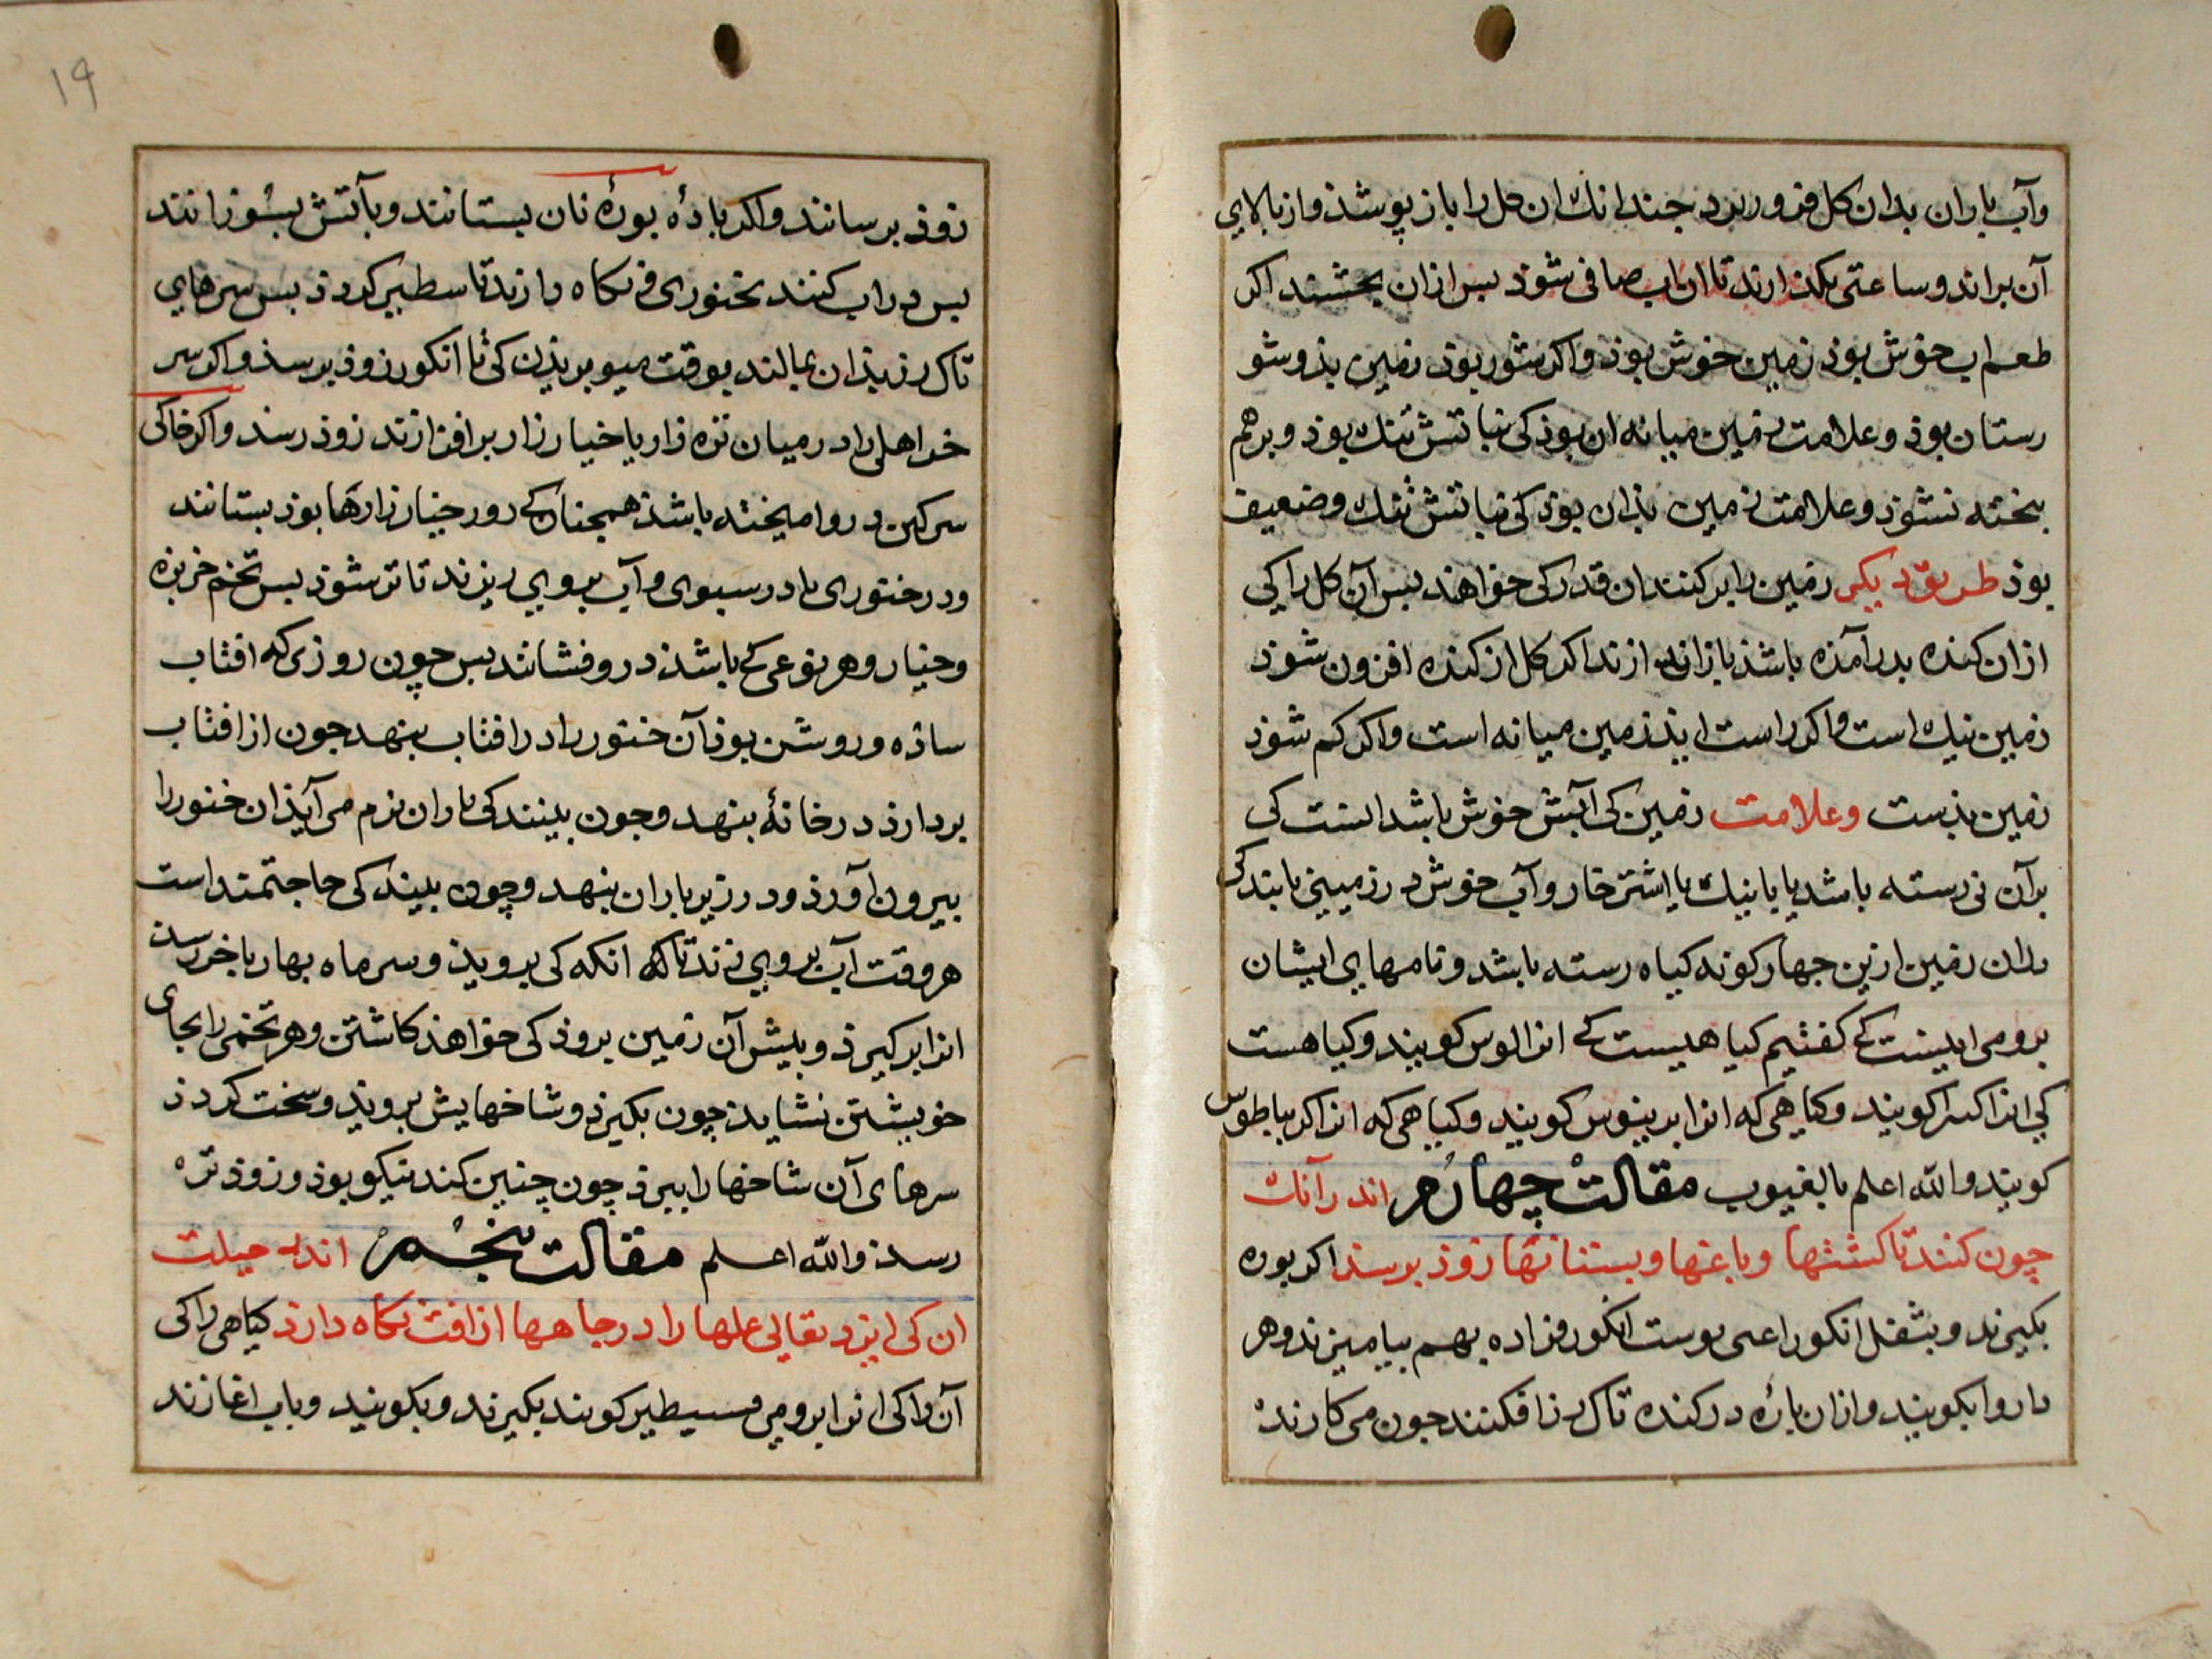 وآب باران بدان کل فرو ریزد جندانک ان کل را باز پوشذ واز بالای
آن براند وساعتی بکذارند تا ان اب صافی شوذ بس ازان بجشند اکر
طعم اب خوش بوذ زمین خوش بوذ واکر شور بوذ زمین بذ وشو
رستان بوذ وعلامت زمین میانه ان بوذ کی نباتش تنک بوذ وبرهم
بخته نشوذ وعلامت زمین بذ ان بوذ کی نباتش تنک وضعیف
بوذ طریق دیکر زمین را بر کنند ان قدر کی خواهند بس آن کل را کی
ازان کنده بدر آمذه باشذ باز اندازند اکر کل از کنده افزون شوذ
زمین نیک است واکر راست ایذ زمین میانه است واکر کم شوذ
زمین بذست وعلامت زمین کی آبش خوش باشد انست کی
برآن نی رسته باشد یا بابنیک یا اشترخار وآب خوش در زمینی یابند کی
بدان زمین ازین جهار کونه کیاه رسته باشد ونامهای ایشان
برومی اینست کی کفتیم کیاهیست کی انرا لوس کویند وکیاهست
کی انرا کویند وکیاهی که انرا کویند وکیاهی که انرا
کویند والله اعلم بالغیوب مقالت چهارم اندر آنک
چون کنند تا کشتها وباغها وبستنانها زوذ برسند اکر بوره
بکیرند وبثفل انکور اعنی بوست انکور فراده بهم بیامیزند وهر
دارو بکوبند وازان باره در کنده تاک رز افکنند جون می کارند
19
زوذ برسانند واکر باذه بوره نان بستانند وبآتش بسوزانند
بس در اب کنند بخنوری ونکاه دارند تا سطبر کردذ بس سرهای
تاک رز بذان بمالند بوقت میو بریذن کی تا انکور زوذ برسذ واکر سر
خر اهلی را در میان تره زار یا خیار زار بر افرازند زوذ رسد واکر خاکی
سرکین درو امیخته باشذ همجنان کی در خیار زارها بوذ بستانند
ودر خنوری یا در سبوی وآب بروی ریزند تا تر شوذ بس تخم خربزه
وخیار وهر نوعی کی باشذ درو فشانند بس چون روزی که افتاب
ساذه وروشن بوذ آن خنور را در افتاب بنهد جون از افتاب
بردارذ در خانهٔ بنهد وجون بینند کی باران نرم می آیذ ان خنور را
بیرون آورذ ودر زیر باران بنهد وچون بیند کی حاجتمند است
هر وقت آب بروی زند تا انکه کی برویذ وسر ماه بهار باخر رسد
انرا بر کیرذ وبیش آن زمین بروذ کی خواهذ کاشتن وهر تخمی را بجای
خویشتن نشایذ چون بکیرذ وشاخهایش برویذ وسخت کردذ
سرهای آن شاخها را ببرذ چون چنین کند نیکو بوذ وزوذ تره
رسذ والله اعلم مقالت بنجم اندر حیلت
ان کی ایزد تعالی غلها را در جاهها از افت نکاه دارذ کیاهی را کی
آن را کی انرا برومی کویند بکیرند وبکوبند وباب اغارند